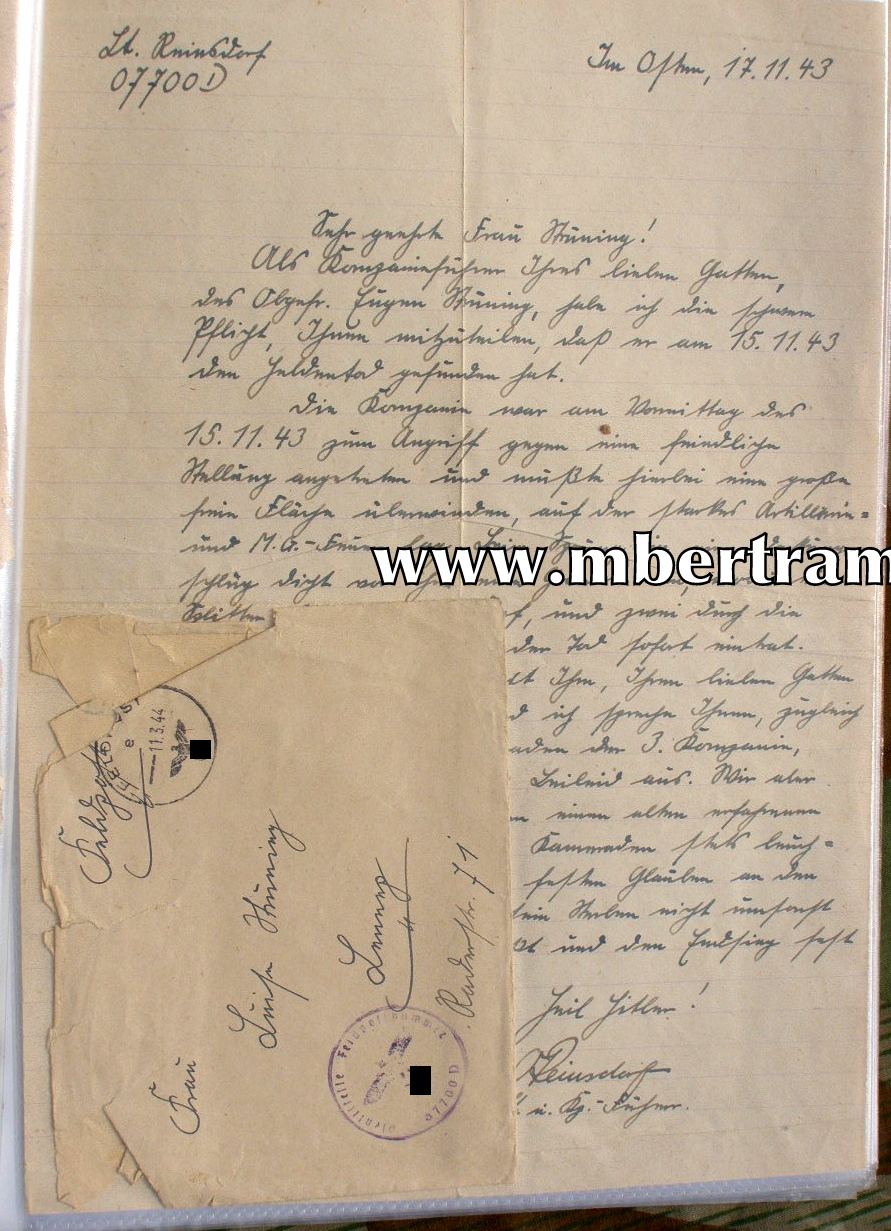 Lt. Reinsdorf
07700D
Im Osten, 17.11.43
Sehr geehrte Frau Strüning!
Als Kompanieführer Ihres lieben Gatten,
des Obgefr. Eugen Strüning, habe ich die schwere
Pflicht, Ihnen mitzuteilen, daß er am 15.11.43
den Heldentod gefunden hat.
Die Kompanie war am Vormittag des
15.11.43 zum Angriff gegen eine feindliche
Stellung angetreten und mußte hierbei eine große
freie Fläche überwinden, auf der starkes Artillerie=
und M.G.-Feuer lag. Beim
www.mbertram
schlug dicht vor ihm eine
Splitter und zwei durch die
der Tod sofort eintrat.
Ihm, Ihrem lieben Gatten
ich spreche Ihnen, zugleich
der 3. Kompanie,
Beileid aus. Wir aber
einen alten erfahrenen
Kameraden stets leuch=
festen Glauben an den
Sterben nicht umsonst
und den Endsieg fest
Heil Hitler!
Reinsdorf
u. Kp.-Führer.
Feldpost
e
11.3.44
Frau
Luise Strüning
Lennep
Raderstr. 71
Dienststelle Feldpostnummer
07700D